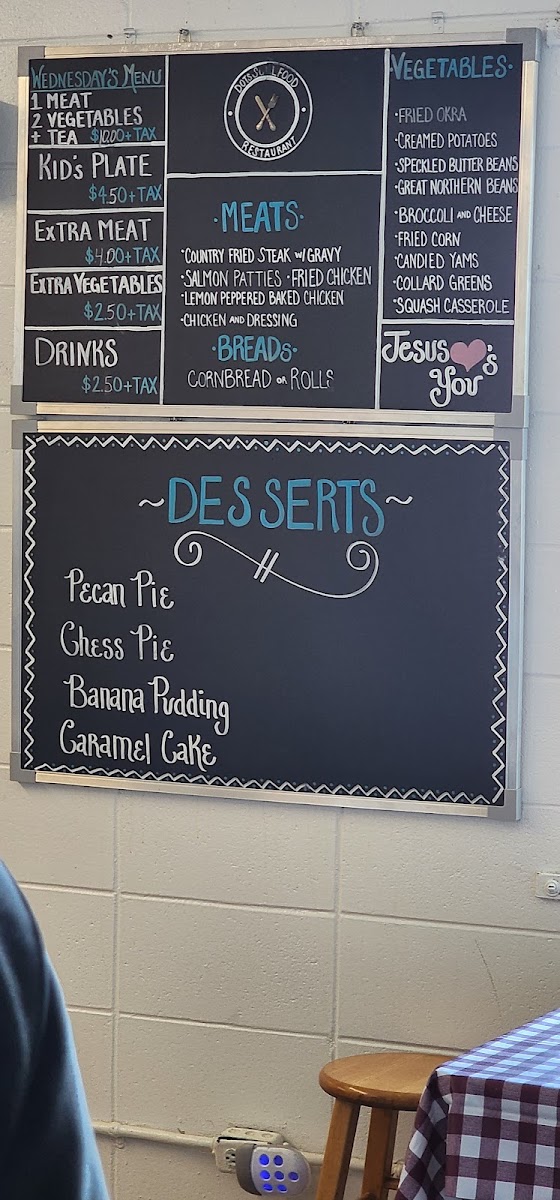 WEDNESDAY'S MENU
1 MEAT
2 VEGETABLES
+ TEA $10.00+TAX
KID's PLATE
$4.50+TAX
ExTRA MEAT
$4.00+TAX
ExTRA VEGETABLES
$2.50+TAX
DRINKS
$2.50+TAX
DOTS SOUL FOOD
RESTAURANT
·MEATS·
·COUNTRY FRIED STEAK w/GRAVY
·SALMON PATTIES ·FRIED CHICKEN
·LEMON PEPPERED BAKED CHICKEN
·CHICKEN AND DRESSING
·BREADs·
CORNBREAD OR ROLLS
·VEGETABLES·
·FRIED OKRA
·CREAMED POTATOES
·SPECKLED BUTTER BEANS
·GREAT NORTHERN BEANS
·BROCCOLI AND CHEESE
·FRIED CORN
·CANDIED YAMS
·COLLARD GREENS
·SQUASH CASSEROLE
Jesus 's
You
~DESSERTS~
Pecan Pie
Chess Pie
Banana Pudding
Caramel Cake